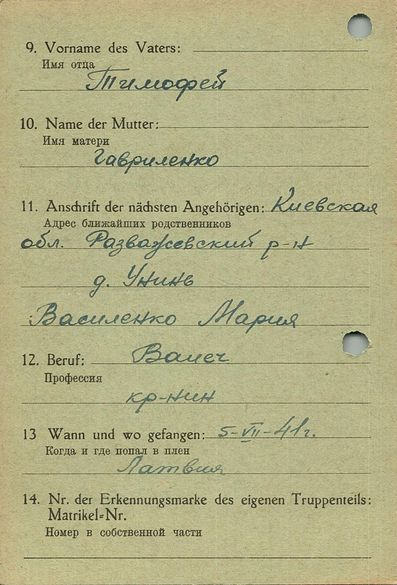 9. Vorname des Vaters:
Имя отца
Тимофей
10. Name der Mutter:
Имя матери
Гавриленко
11. Anschrift der nächsten Angehörigen: Киевская
Адрес ближайших родственников
обл. Разважевский р-н
д. Унинь
Василенко Мария
12. Beruf:
Профессия
кр-нин
13 Wann und wo gefangen: 5-VII-41г.
Когда и где попал в плен
Латвия
14. Nr. der Erkennungsmarke des eigenen Truppenteils:
Matrikel=Nr.
Номер в собственной части